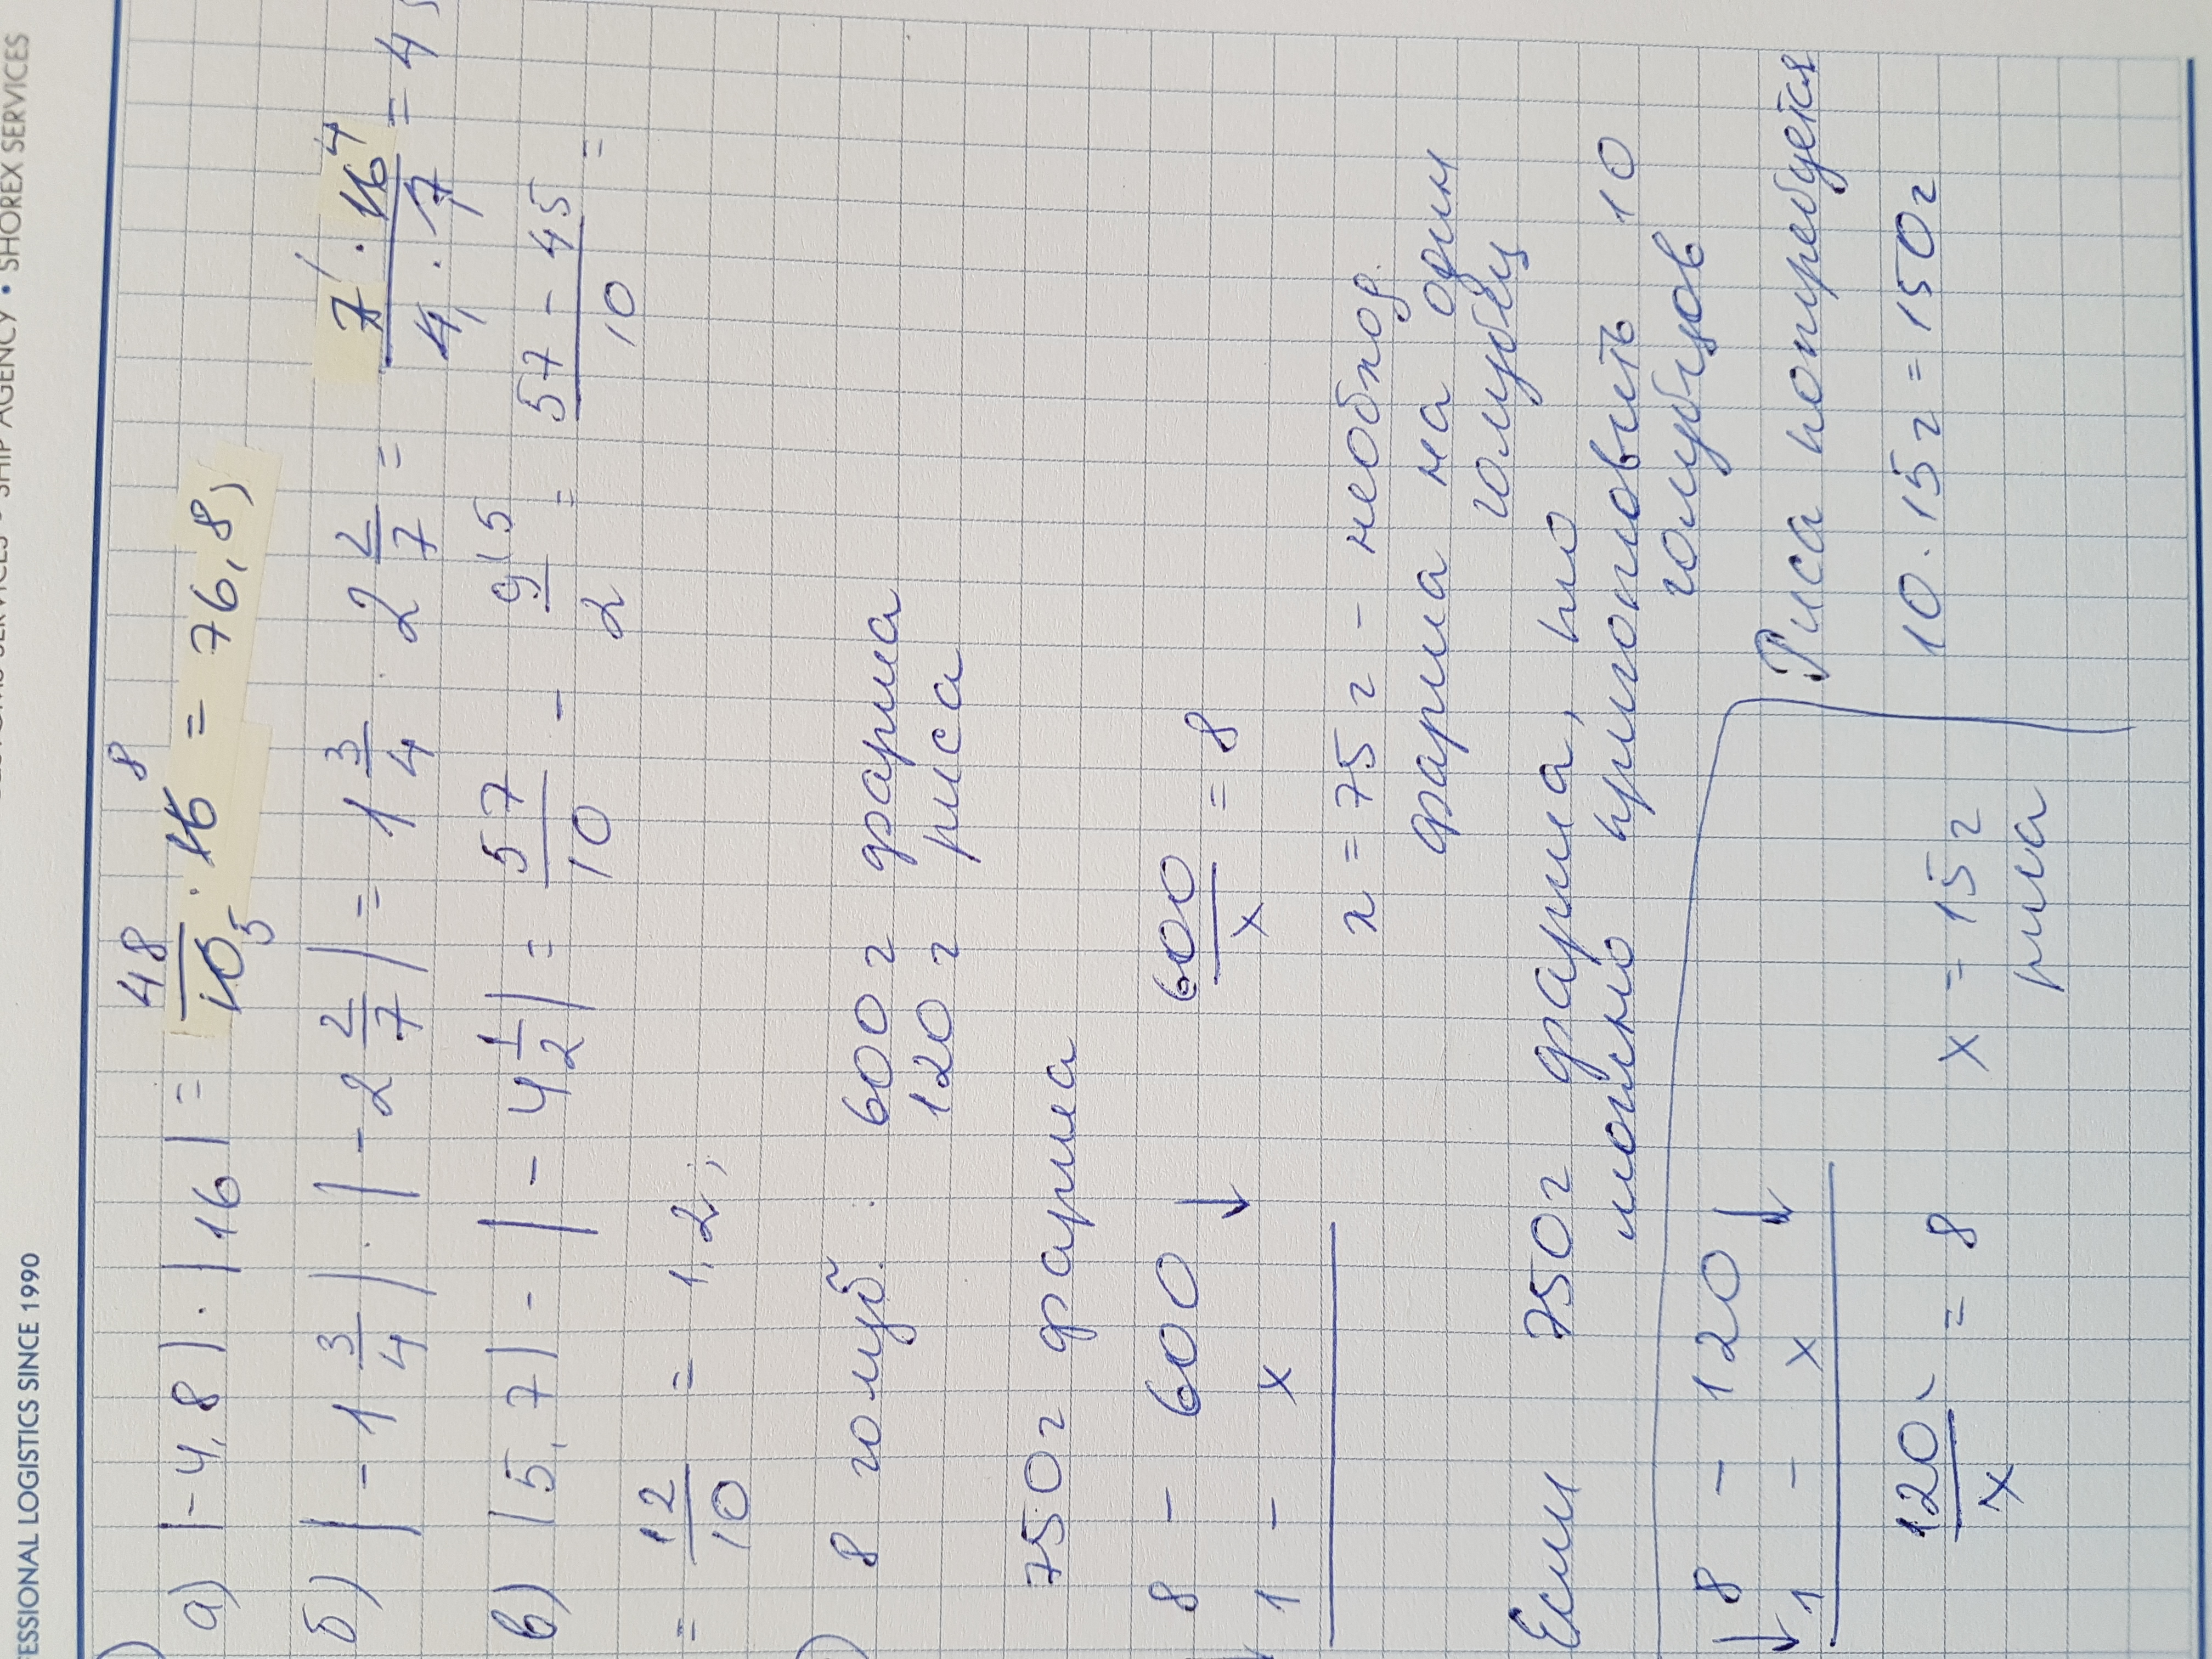 ESSIONAL LOGISTICS SINCE 1990
SHIP AGENCY • SHOREX SERVICES
а) |-4,8| · |16| = 48/10 5 · 16 8 = 76,8;
б) |-1 3/4| · |-2 2/7| = 1 3/4 · 2 2/7 = 7 1 · 16 4 / 4 1 · 7 = 4
в) |5,7| - |-4 1/2| = 57/10 - 9/2 (5 = 57 - 45 / 10 =
= 12/10 = 1,2;
8 голуб. : 600 г фарша
120 г риса
750 г фарша
8 - 600 ↓
1 - x
600/x = 8
x = 75 г - необход.
фарша на один
голубец
Если 750 г фарша, то
можно приготовить 10
голубцов
↓ 8 - 120 ↓
1 - x
120/x = 8
x = 15 г
риса
Риса потребуется
10 · 15 г = 150 г